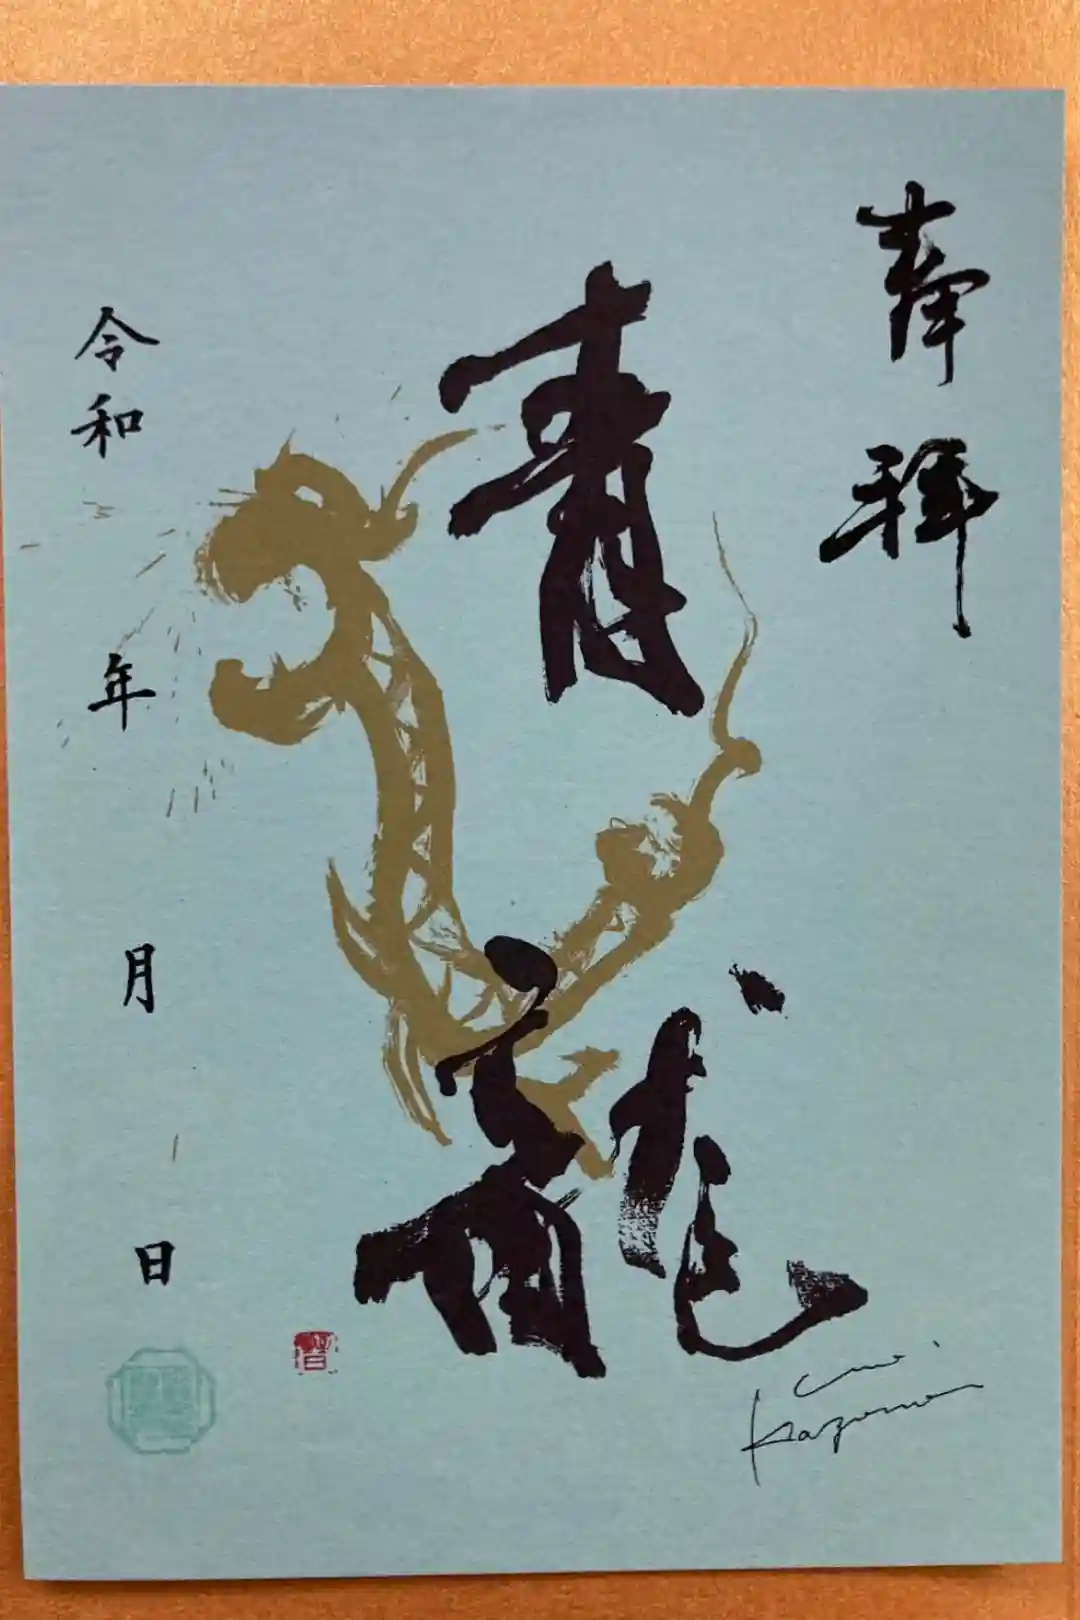 奉拝
青龍
令和 年 月 日